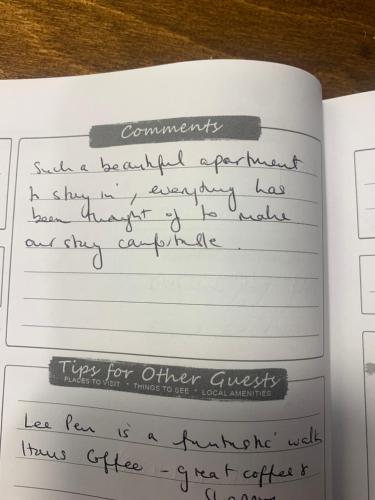 Comments
Such a beautiful apartment
to stay in, everything has
been thought of to make
our stay comfortable.
Tips for Other Guests
PLACES TO VISIT * THINGS TO SEE * LOCAL AMENITIES
Lee Pen is a fantastic walk
Coffee - great coffee &